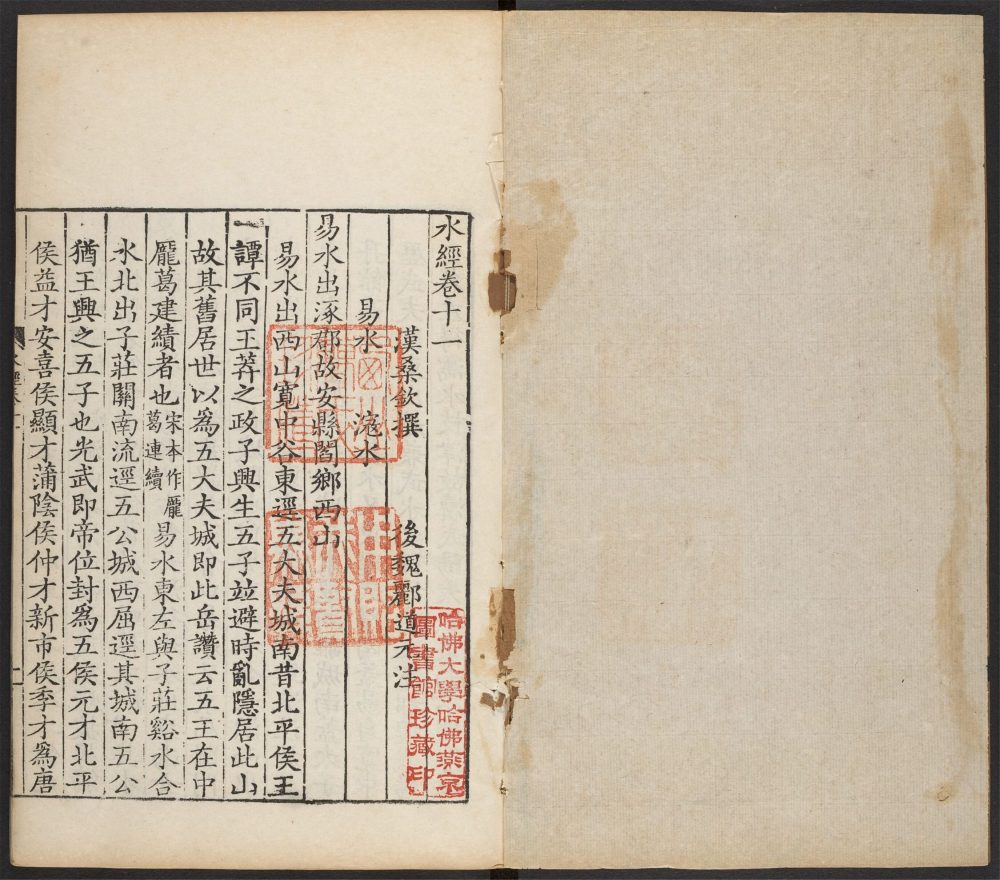 水經卷十一
漢桑欽撰　後魏酈道元注
易水　滱水
易水出涿郡故安縣閻鄉西山
易水出西山寬中谷東逕五大夫城南昔北平侯王
譚不同王莽之政子興生五子並避時亂隱居此山
故其舊居世以爲五大夫城即此岳讚云五王在中
龎葛建績者也宋本作龎葛連續易水東左與子莊谿水合
水北出子莊關南流逕五公城西屈逕其城南五公
猶王興之五子也光武即帝位封爲五侯元才北平
侯益才安喜侯顯才蒲陰侯仲才新市侯季才爲唐
哈佛大學哈佛燕京
圖書館珍藏印